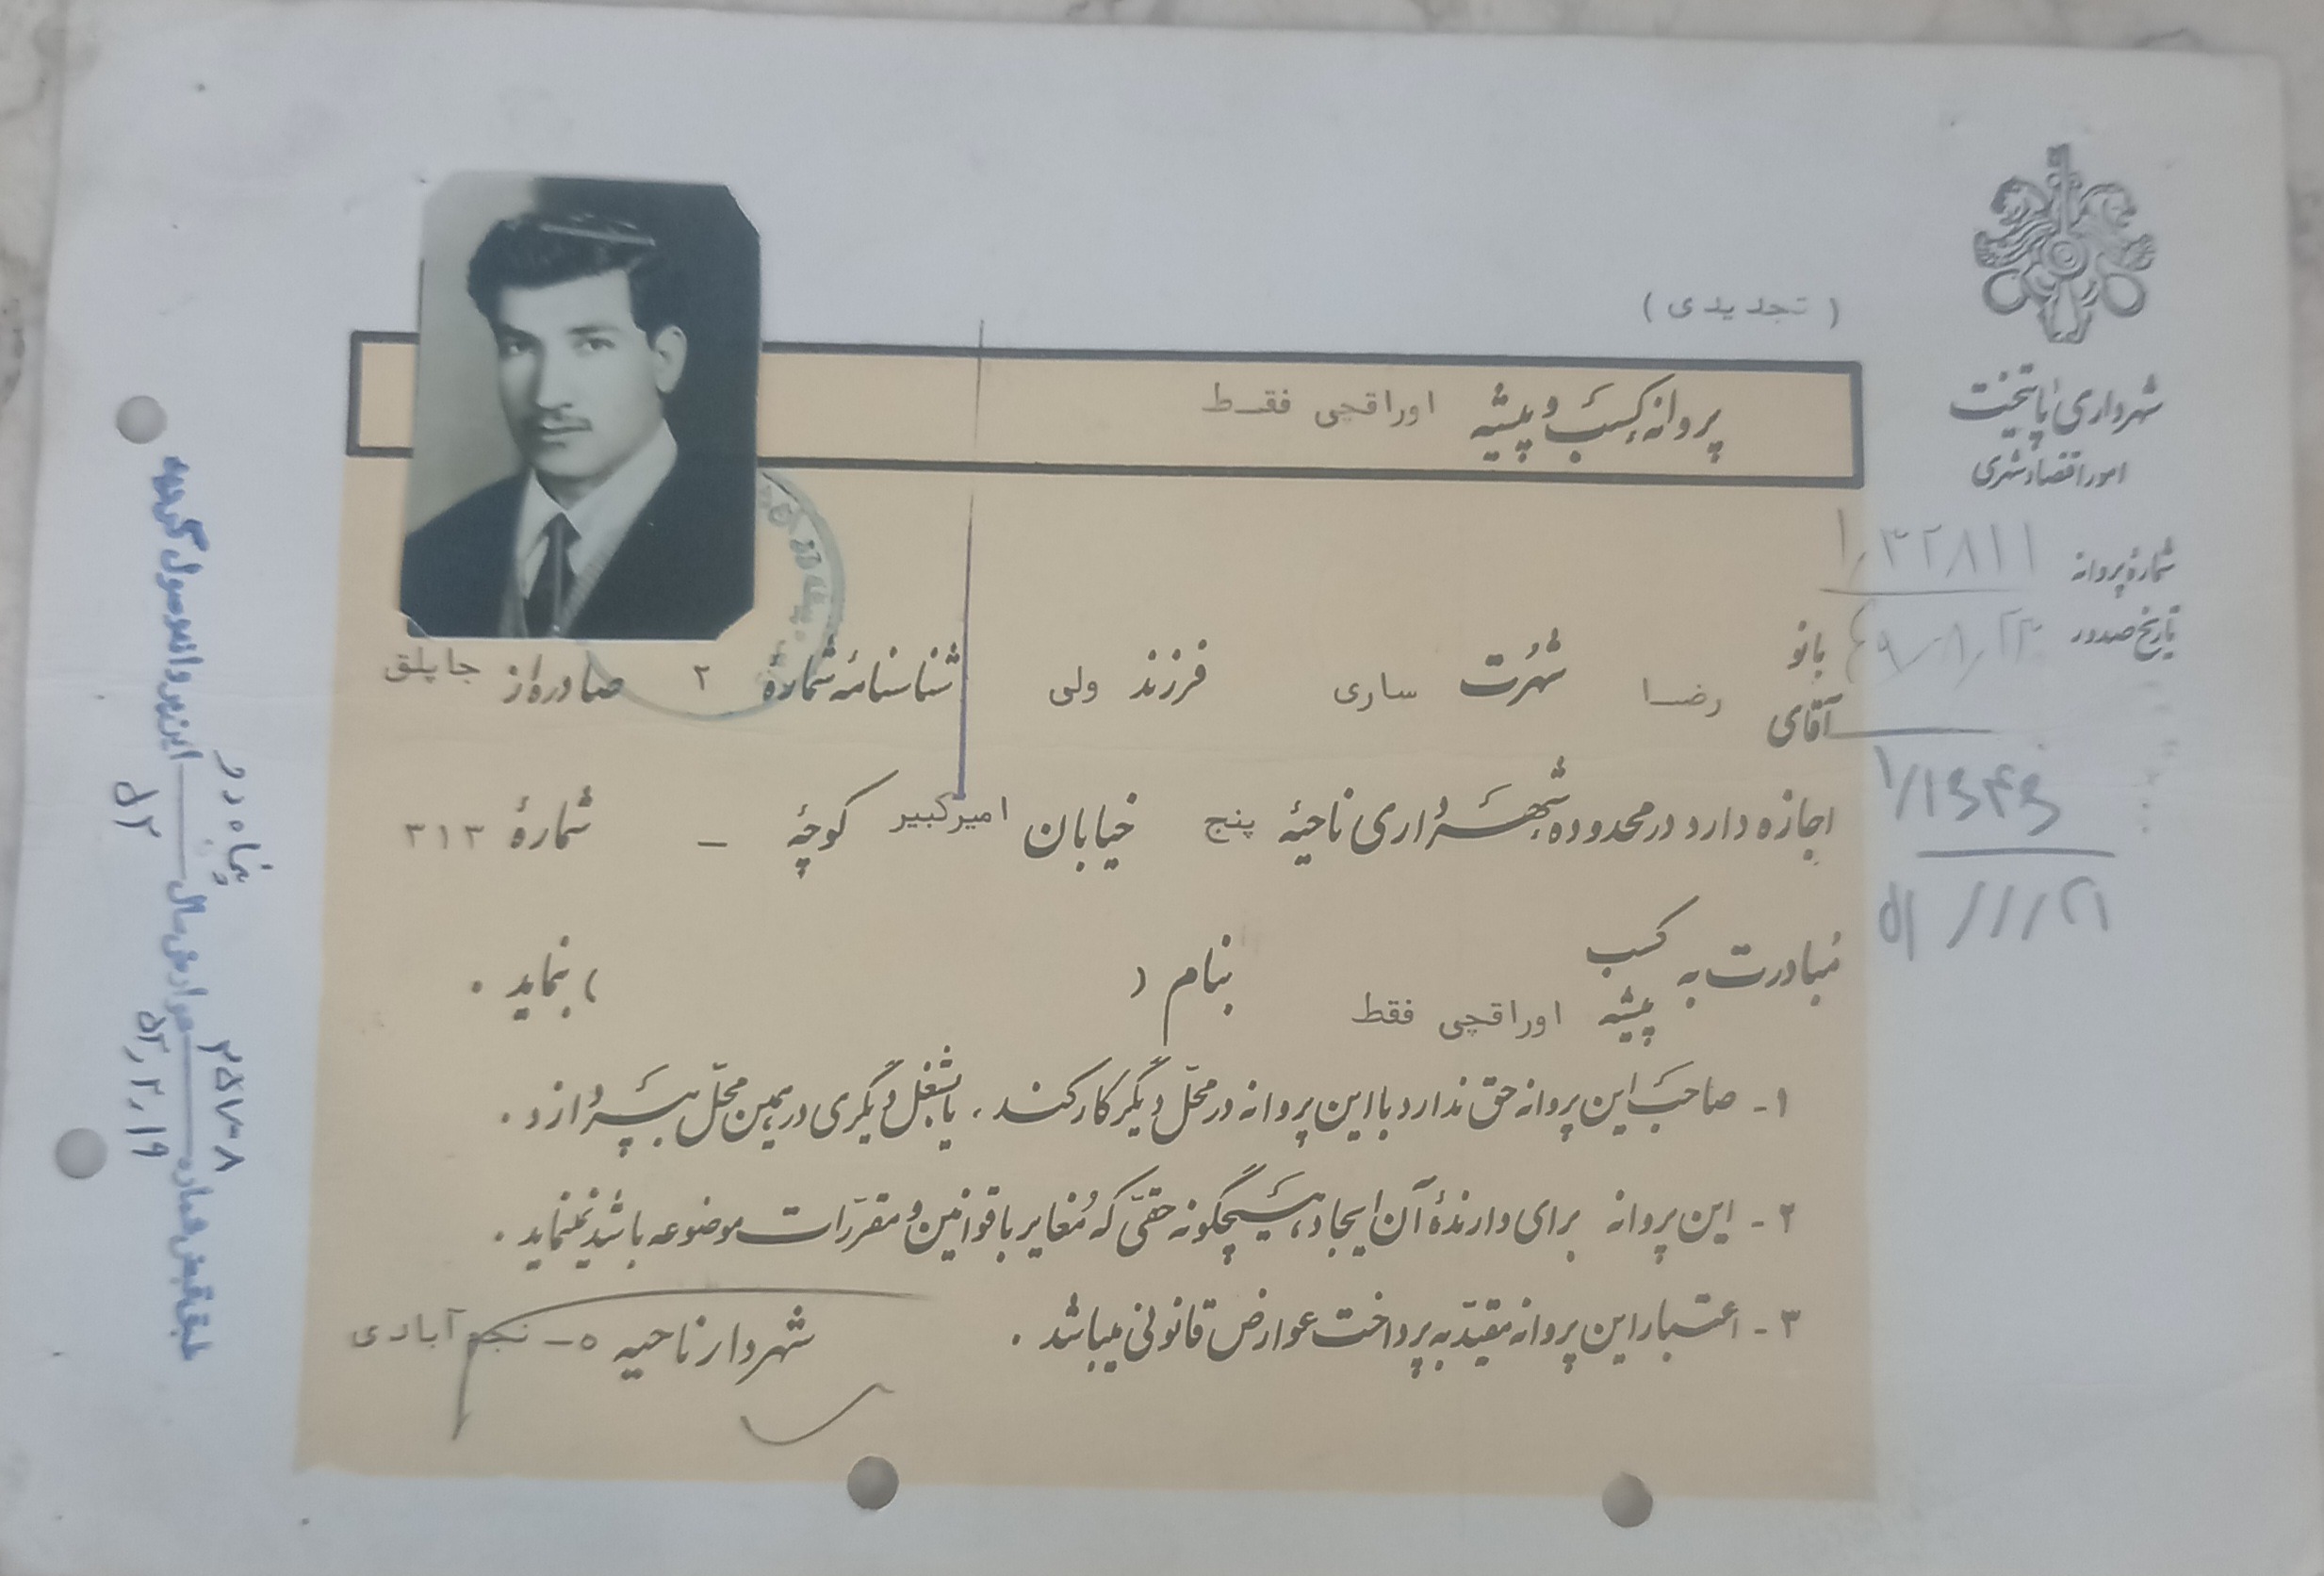 ( تجدیدی )
شهرداری پایتخت
امور اقتصاد شهری
پروانه کسب و پیشه اوراقچی فقط
شمارهٔ پروانه ۱٫۳۲۸۱۱
تاریخ صدور
۵۱/۱/۲۱
بانو
آقای رضا شهرت ساری فرزند ولی شناسنامه شماره ۲ صادره از جاپلق
اجازه دارد در محدوده شهرداری ناحیهٔ پنج خیابان امیرکبیر کوچهٔ – شمارهٔ ۳۱۳
مبادرت به کسب
پیشه اوراقچی فقط بنام ( ) بنماید .
۱- صاحب این پروانه حق ندارد با این پروانه در محلّ دیگر کار کند ، یا بشغل دیگری در همین محلّ بپردازد .
۲- این پروانه برای دارندهٔ آن ایجاد هیچگونه حقی که مُغایر با قوانین و مقرّرات موضوعه باشد نمینماید .
۳- اعتبار این پروانه مقیّد به پرداخت عوارض قانونی میباشد .
شهردار ناحیه ۵- نجم آبادی
۵۲ عوارض سال
۲۵۷۰۸
۵۲٫۲٫۱۹
طبق قبض شماره